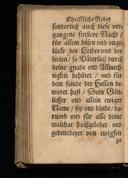 Christliche Gebet
sonderlich auch diese ver-
gangene finstere Nacht /
für allem bösen und unge-
lück des Leibes und der
seelen / so Väterlich durch
deine gnade und Allmech-
tigkeit behütet / und für
dem feinde der Hellen be-
waret hast / Dein Göt-
licher und allein ewiger
Name / sey und bleibe / da-
rumb und für alle deine
wolthat hochgelobet und
gebenedeyet von ewigkeit